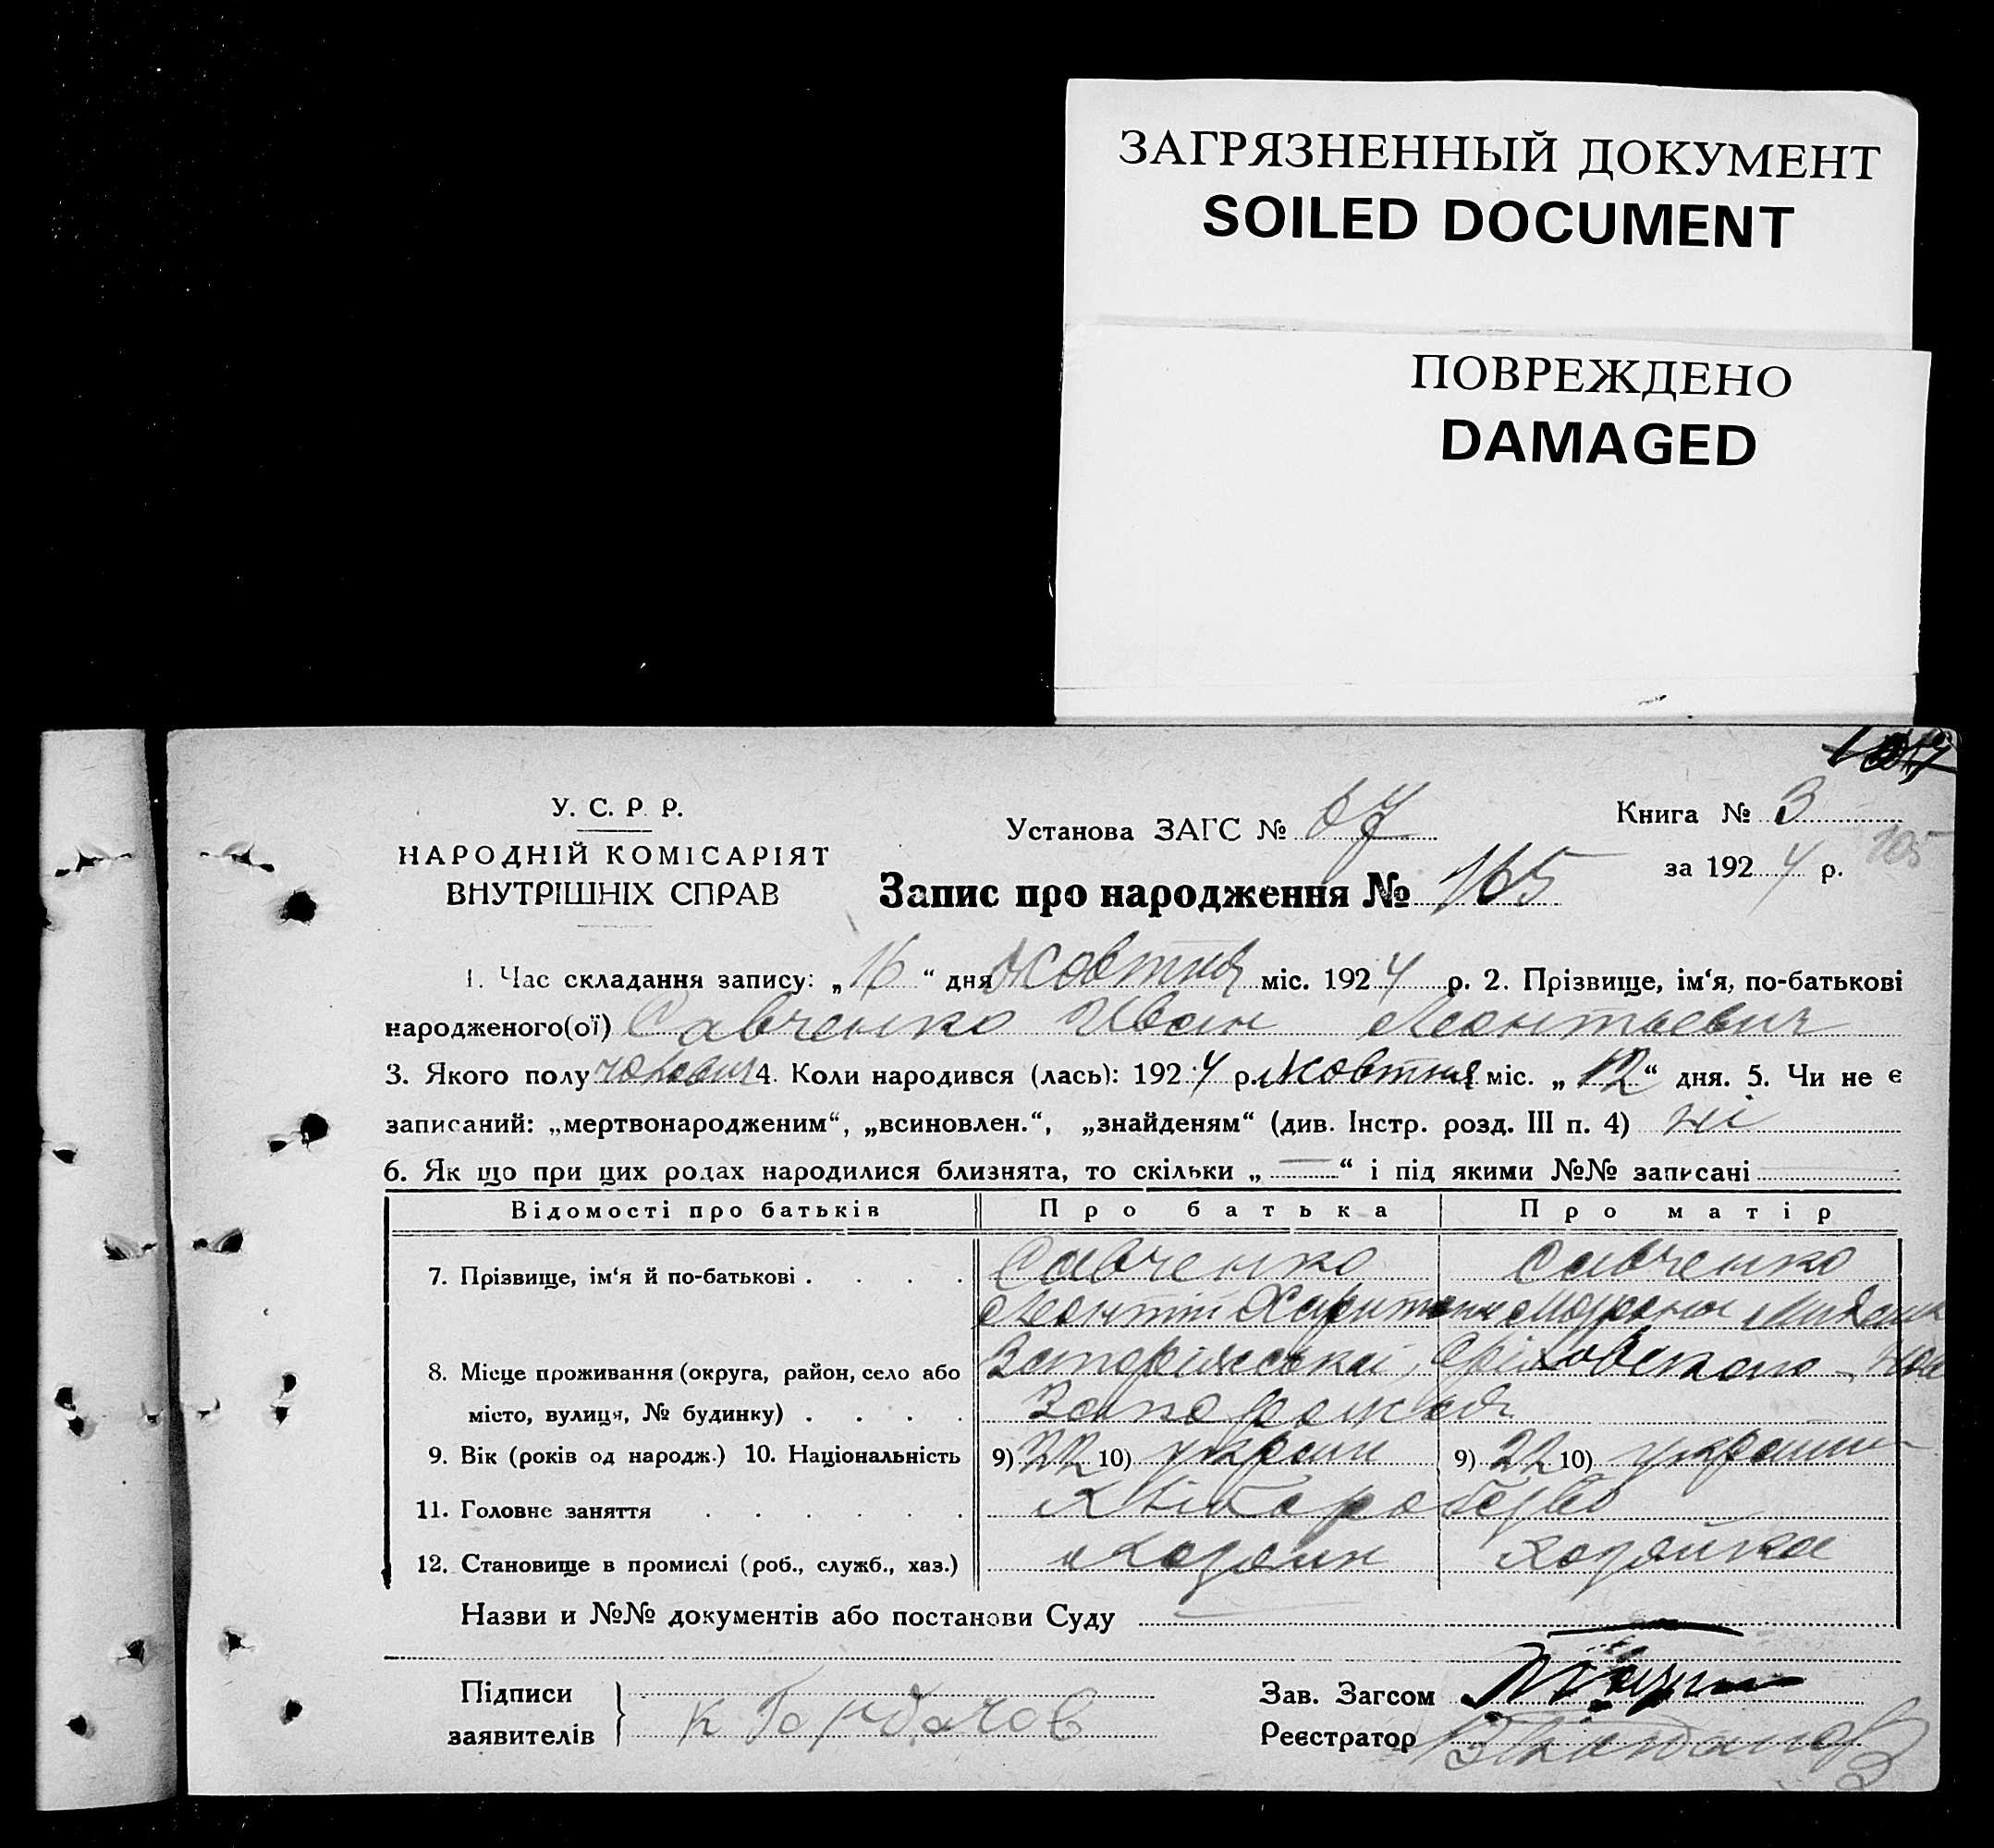 ЗАГРЯЗНЕННЫЙ ДОКУМЕНТ
SOILED DOCUMENT
ПОВРЕЖДЕНО
DAMAGED
У. С. Р. Р.
НАРОДНІЙ КОМІСАРІЯТ
ВНУТРІШНІХ СПРАВ
Установа ЗАГС №
Книга № 3
за 1924 р.
105
Запис про народження № 165
1. Час складання запису: „16“ дня Жовтня міс. 1924 р. 2. Прізвище, ім‘я, по-батькові
народженого(ої) Савченко Иван Леонтьевич
3. Якого полу чолович 4. Коли народився (лась): 1924 р. Жовтня міс. „12“ дня. 5. Чи не є
записаний: „мертвонародженим“, „всиновлен.“, „знайденям“ (див. Інстр. розд. III п. 4) ні
6. Як що при цих родах народилися близнята, то скільки „—“ і під якими №№ записані
Відомості про батьків Про батька Про матір
7. Прізвище, ім‘я й по-батькові . . . . Савченко Савченко
Леонтій
8. Місце проживання (округа, район, село або
місто, вулиця, № будинку) . . . .
9. Вік (років од народж.) 10. Національність 9) 22 10) украин 9) 22 10) украин
11. Головне заняття . . . . . . Хліборобство
12. Становище в промислі (роб., служб., хаз.) Хозяин Хозяйка
Назви и №№ документів або постанови Суду
Підписи
заявителів } к Горбачов
Зав. Загсом
Реєстратор